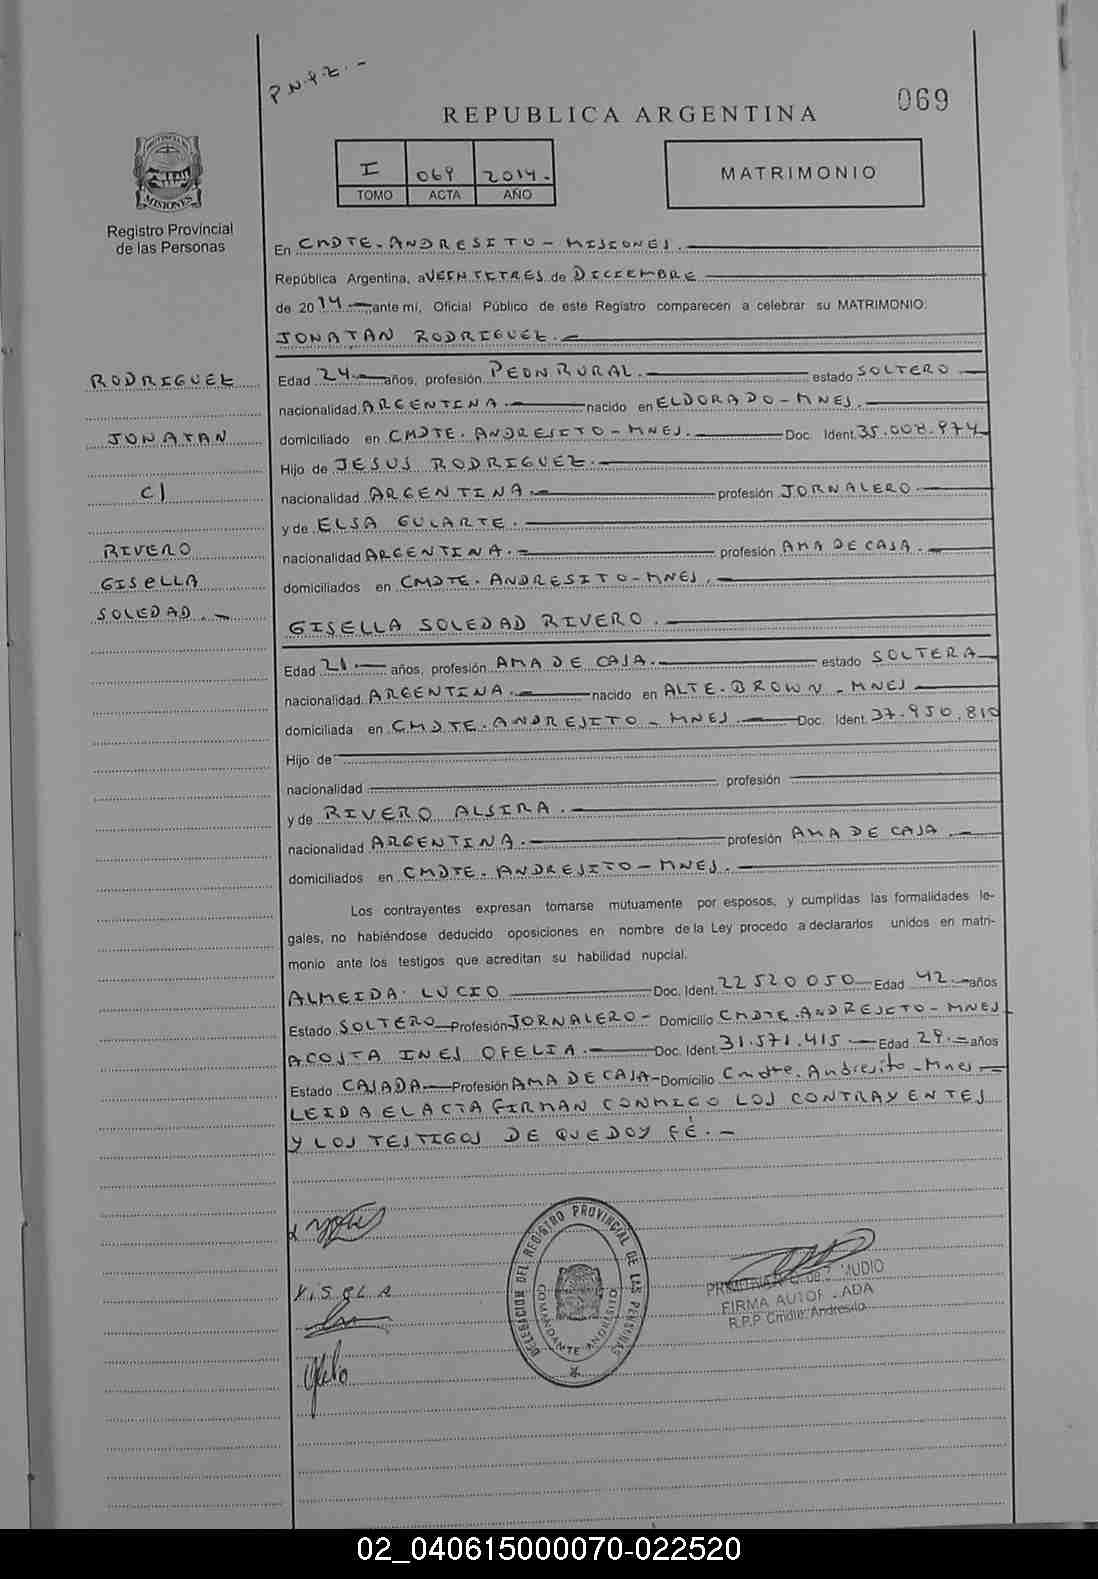 P.N.P.Z.-
069
REPUBLICA ARGENTINA
PROVINCIA
MISIONES
I 069 2014.
TOMO ACTA AÑO
MATRIMONIO
Registro Provincial
de las Personas
En CMDTE. ANDRESITO - MISIONES.
República Argentina, a VEINTITRES de DICIEMBRE
de 2014 ante mí, Oficial Público de este Registro comparecen a celebrar su MATRIMONIO:
JONATAN RODRIGUEZ.
RODRIGUEZ
JONATAN
C/
RIVERO
GISELLA
SOLEDAD.-
Edad 24.- años, profesión PEON RURAL. estado SOLTERO
nacionalidad ARGENTINA. nacido en ELDORADO - MNES.
domiciliado en CMDTE. ANDRESITO - MNES. Doc. Ident. 35.008.974
Hijo de JESUS RODRIGUEZ.
nacionalidad ARGENTINA. profesión JORNALERO
y de ELSA GULARTE.
nacionalidad ARGENTINA. profesión AMA DE CASA.
domiciliados en CMDTE. ANDRESITO - MNES.
GISELLA SOLEDAD RIVERO.
Edad 21.- años, profesión AMA DE CASA. estado SOLTERA
nacionalidad ARGENTINA. nacido en ALTE. BROWN - MNES
domiciliada en CMDTE. ANDRESITO - MNES. Doc. Ident. 37.950.810
Hijo de
nacionalidad profesión
y de RIVERO ALSIRA.
nacionalidad ARGENTINA. profesión AMA DE CASA.
domiciliados en CMDTE. ANDRESITO - MNES.
Los contrayentes expresan tomarse mutuamente por esposos, y cumplidas las formalidades le-
gales, no habiéndose deducido oposiciones en nombre de la Ley procedo a declararlos unidos en matri-
monio ante los testigos que acreditan su habilidad nupcial.
ALMEIDA LUCIO Doc. Ident. 22520050 Edad 42.- años
Estado SOLTERO Profesión JORNALERO - Domicilio CMDTE. ANDRESITO - MNES
ACOSTA INES OFELIA. Doc. Ident. 31.571.415 Edad 29.- años
Estado CASADA Profesión AMA DE CASA - Domicilio Cmdte. Andresito - Mnes
LEIDA EL ACTA FIRMAN CONMIGO LOS CONTRAYENTES
Y LOS TESTIGOS DE QUE DOY FÉ.-
DELEGACION DEL REGISTRO PROVINCIAL DE LAS PERSONAS
COMANDANTE ANDRESITO
FIRMA
R.P.P. Cmdte. Andresito
02_040615000070-022520